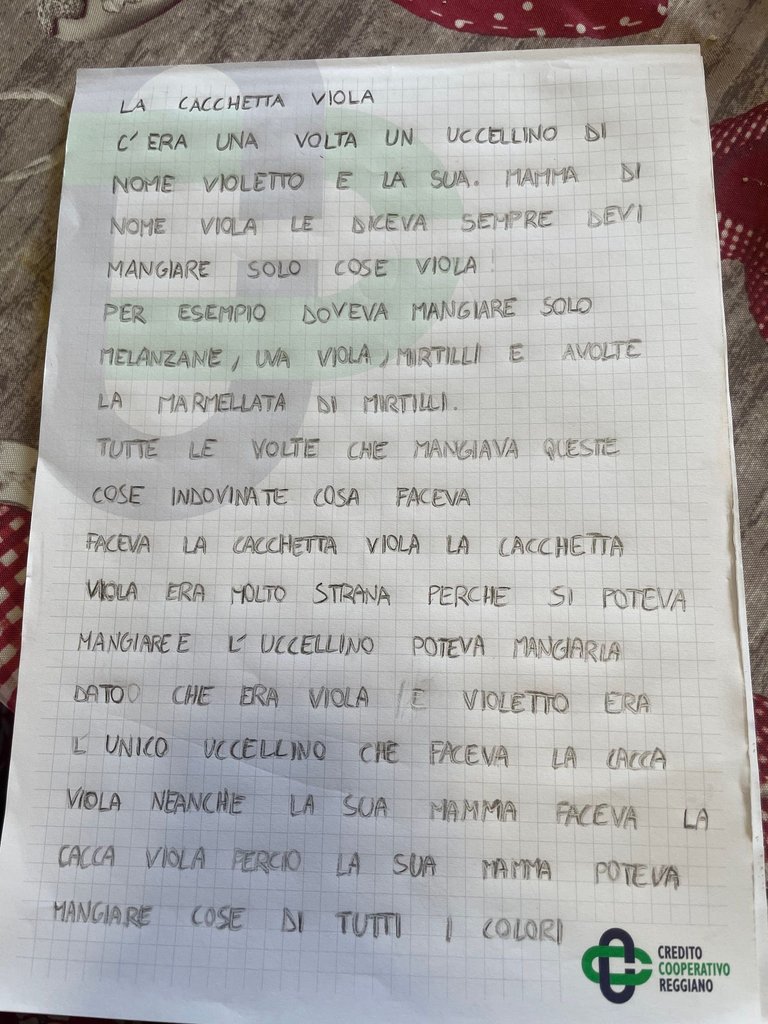 LA CACCHETTA VIOLA
C'ERA UNA VOLTA UN UCCELLINO DI
NOME VIOLETTO E LA SUA. MAMMA DI
NOME VIOLA LE DICEVA SEMPRE DEVI
MANGIARE SOLO COSE VIOLA!
PER ESEMPIO DOVEVA MANGIARE SOLO
MELANZANE, UVA VIOLA, MIRTILLI E AVOLTE
LA MARMELLATA DI MIRTILLI.
TUTTE LE VOLTE CHE MANGIAVA QUESTE
COSE INDOVINATE COSA FACEVA
FACEVA LA CACCHETTA VIOLA LA CACCHETTA
VIOLA ERA MOLTO STRANA PERCHE SI POTEVA
MANGIARE E L'UCCELLINO POTEVA MANGIARLA
DATO CHE ERA VIOLA E VIOLETTO ERA
L'UNICO UCCELLINO CHE FACEVA LA CACCA
VIOLA NEANCHE LA SUA MAMMA FACEVA LA
CACCA VIOLA PERCIO LA SUA MAMMA POTEVA
MANGIARE COSE DI TUTTI I COLORI
CREDITO
COOPERATIVO
REGGIANO